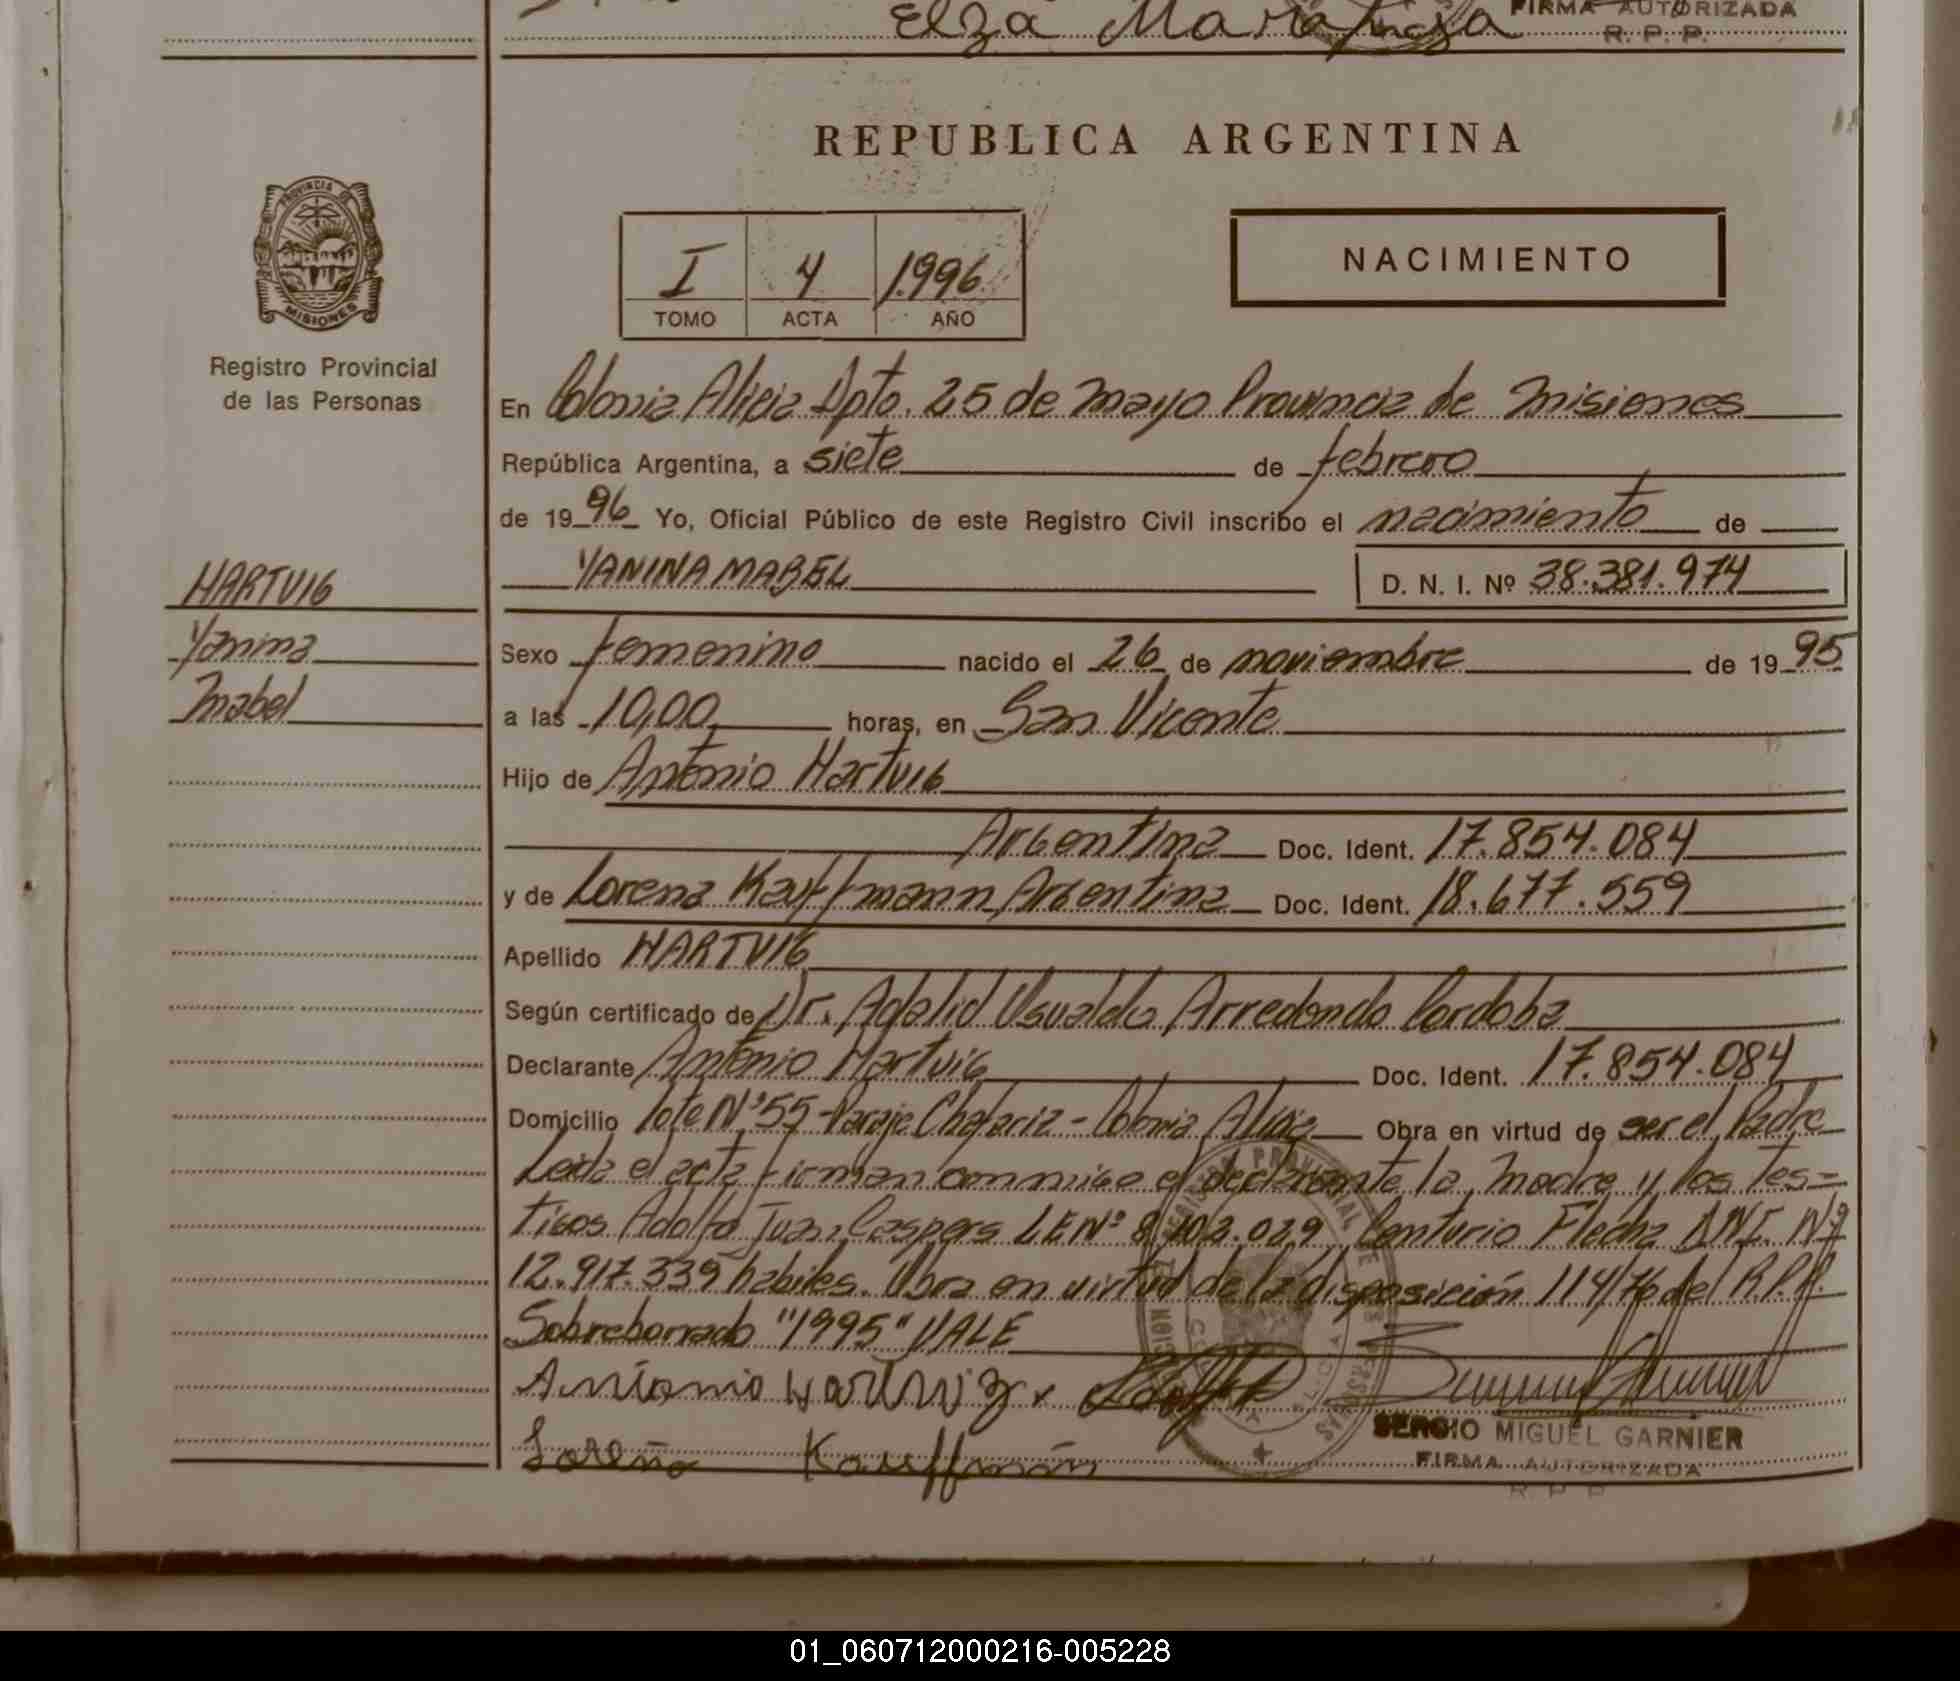 Elza Mara
FIRMA AUTORIZADA
R. P. P.
REPUBLICA ARGENTINA
PROVINCIA DE
MISIONES
Registro Provincial
de las Personas
I 4 1996
TOMO ACTA AÑO
NACIMIENTO
En Colonia Alicia Dpto. 25 de mayo Provincia de Misiones
República Argentina, a siete de febrero
de 1996 Yo, Oficial Público de este Registro Civil inscribo el nacimiento de
HARTVIG
Yanina
Mabel
YANINA MABEL D. N. I. Nº 38.381.974
Sexo femenino nacido el 26 de noviembre de 1995
a las 10,00 horas, en San Vicente
Hijo de Antonio Hartvig
Argentina Doc. Ident. 17.854.084
y de Lorena Kauffmann Argentina Doc. Ident. 18.677.559
Apellido HARTVIG
Según certificado de Dr. Adalid Usualdo Arredondo Cordoba
Declarante Antonio Hartvig Doc. Ident. 17.854.084
Domicilio lote Nº 55 - Paraje Chafariz - Colonia Alicia Obra en virtud de ser el Padre
Leida el acta firman conmigo el declarante, la madre y los tes-
tigos Adolfo Juan Caspers L E Nº 8.402.029 Centurio Flecha DNI. Nº
12.917.339 habiles. Obra en virtud de la disposición 114/76 del R.P.P.
Sobreborrado "1995" VALE
Antonio Hartvig
SERGIO MIGUEL GARNIER
FIRMA AUTORIZADA
R P P
Loreña Kauffmán
01_060712000216-005228